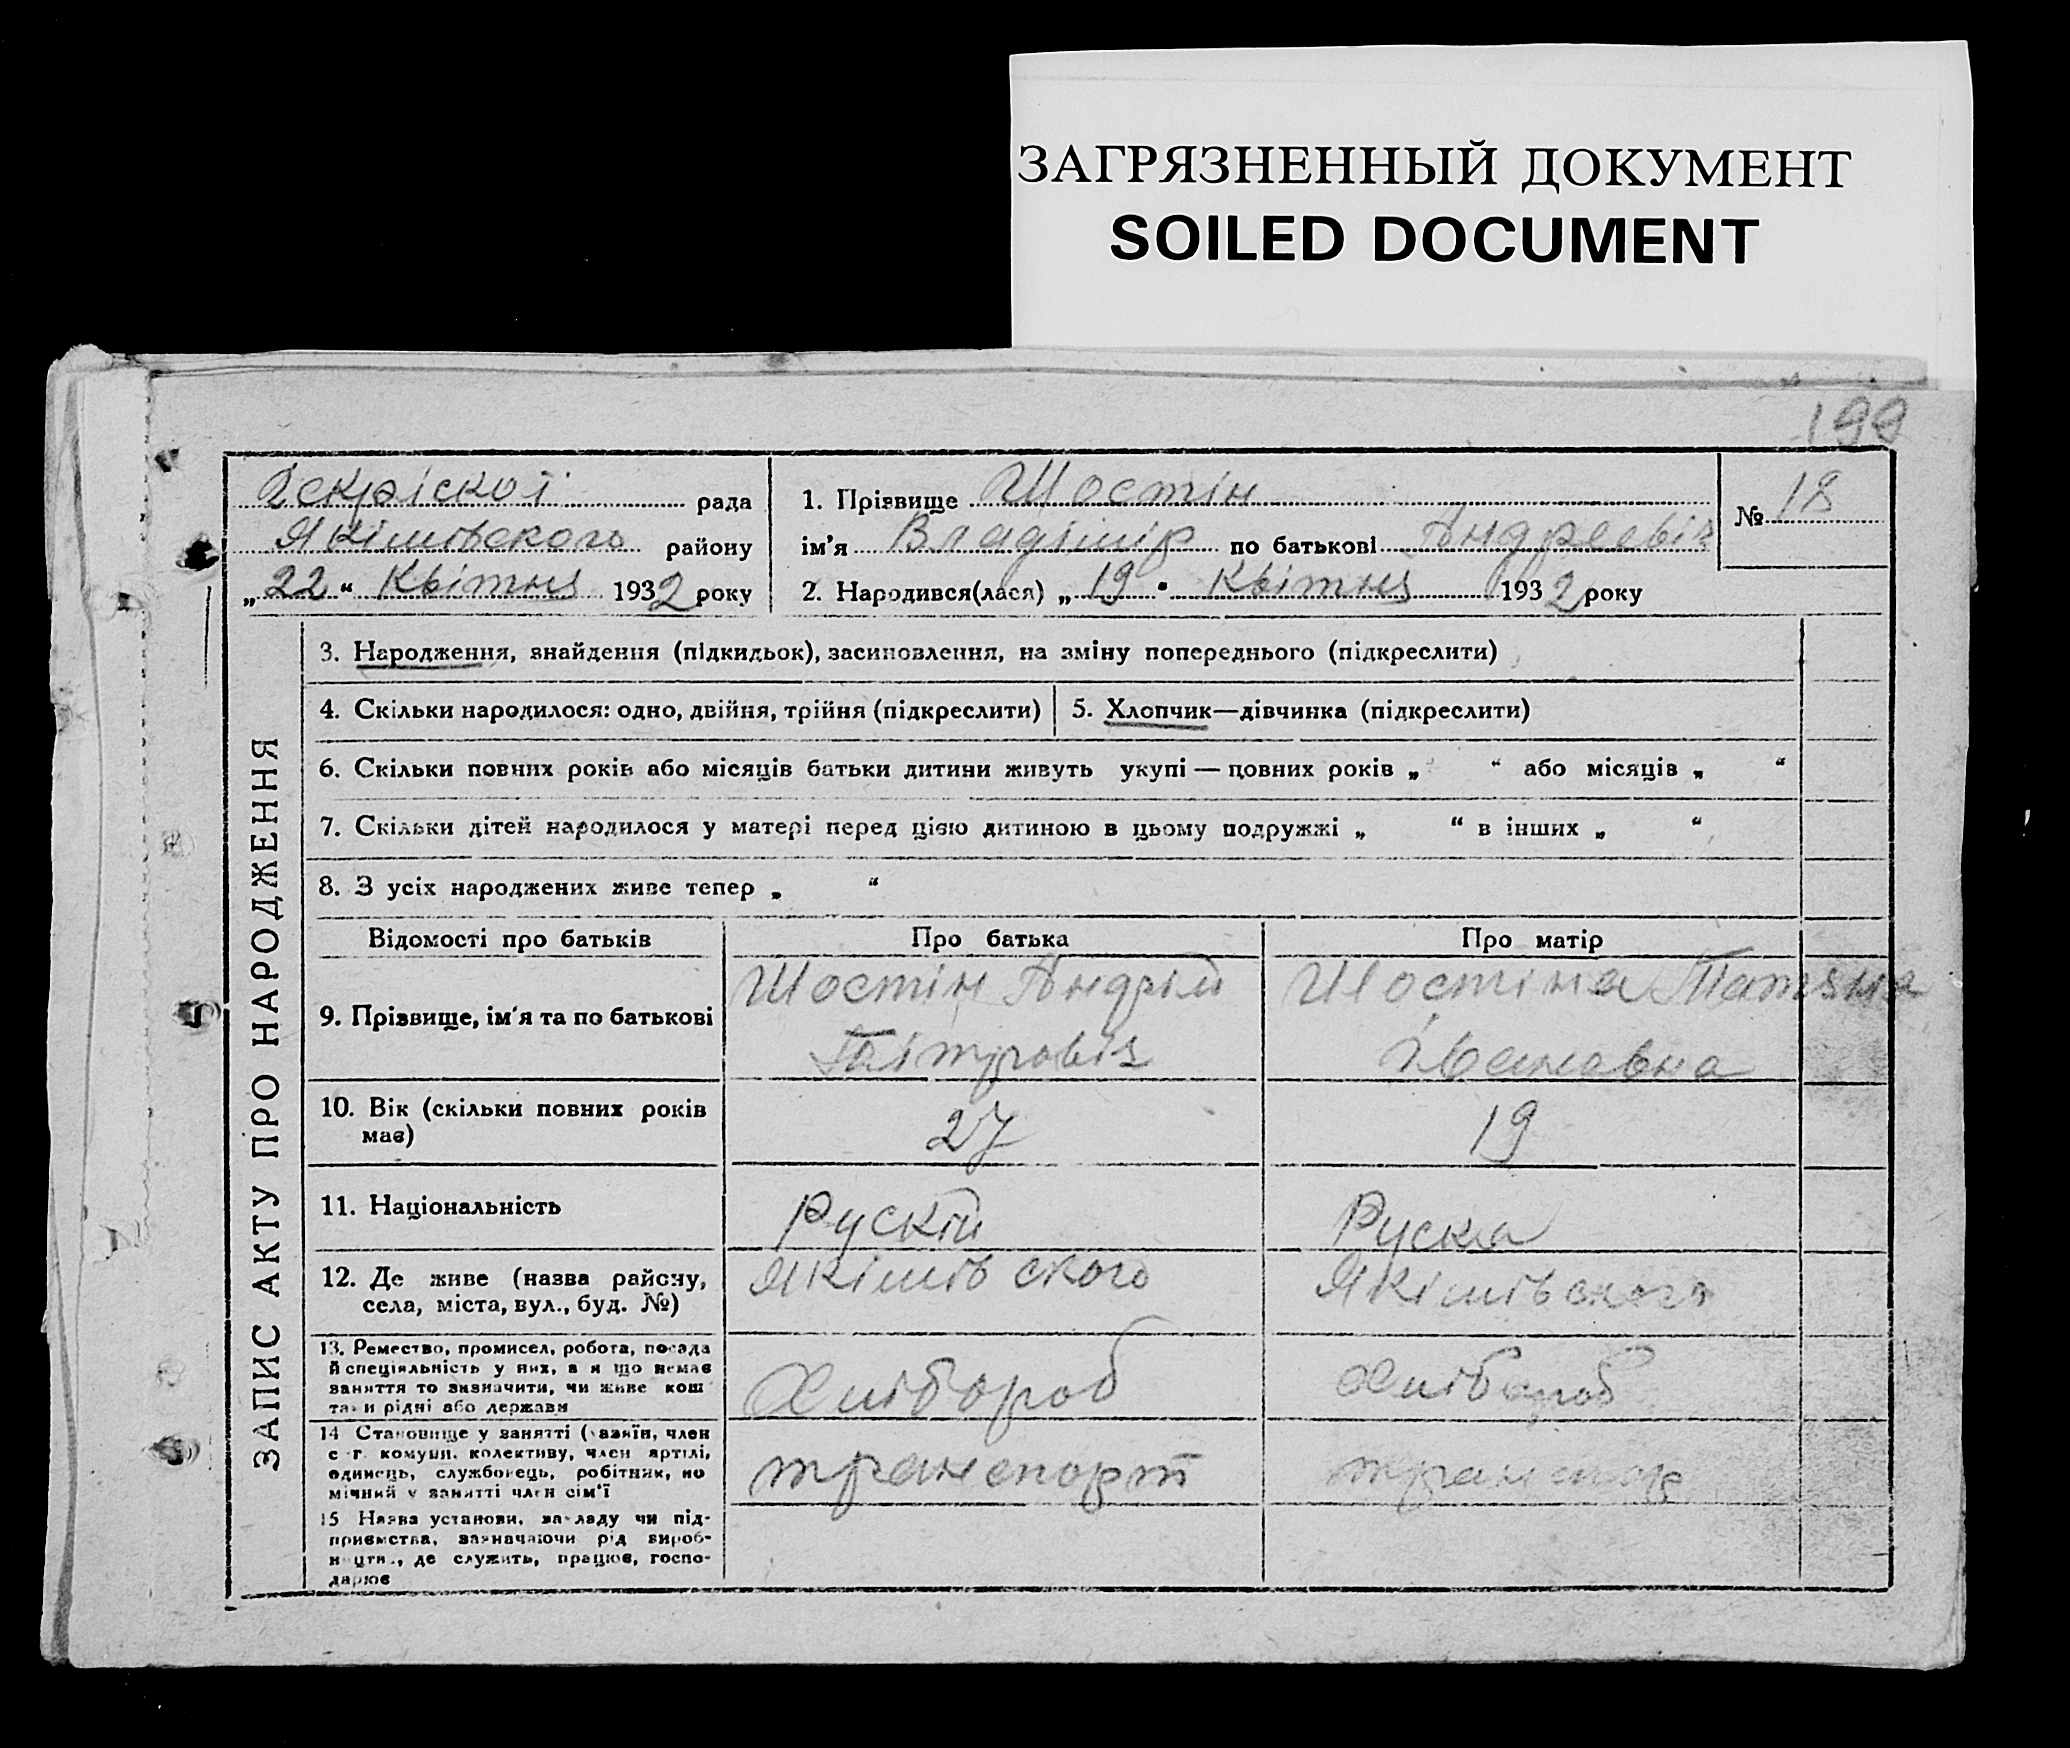 ЗАГРЯЗНЕННЫЙ ДОКУМЕНТ
SOILED DOCUMENT
199
Іскріскої рада
Якімівского району
„22“ Квітня 1932 року
1. Прізвище Шостін
ім’я Владімір по батькові Андреевіч
2. Народився(лася) „19“ Квітня 1932 року
№ 18
ЗАПИС АКТУ ПРО НАРОДЖЕННЯ
3. Народження, знайдення (підкидьок), засиновлення, на зміну попереднього (підкреслити)
4. Скільки народилося: одно, двійня, трійня (підкреслити)
5. Хлопчик—дівчинка (підкреслити)
6. Скільки повних років або місяців батьки дитини живуть укупі — повних років „ “ або місяців „ “
7. Скільки дітей народилося у матері перед цією дитиною в цьому подружжі „ “ в інших „ “
8. З усіх народжених живе тепер „ “
Відомості про батьків Про батька Про матір
9. Прізвище, ім’я та по батькові
Шостін Андрій
Пітровіч
Шостіна Татяна
Івановна
10. Вік (скільки повних років
має)
27
19
11. Національність
Рускій
Руска
12. Де живе (назва району,
села, міста, вул., буд. №)
Якімівского
Якімівского
13. Ремество, промисел, робота, посада
й спеціяльність у них, а я що немає
заняття то зазначити, чи живе кош
та и рідні або держави
Хлібороб
Хлібороб
14 Становище у занятті (хазяїн, член
с г. комуни, колективу, член артілі,
одинець, службовець, робітник, по
мічний у занятті член сім’ї
транспорт
транспор
15 Назва установи, закладу чи під-
приємства, зазначаючи рід вироб-
ництв., де служить, працює, госпо-
дарює